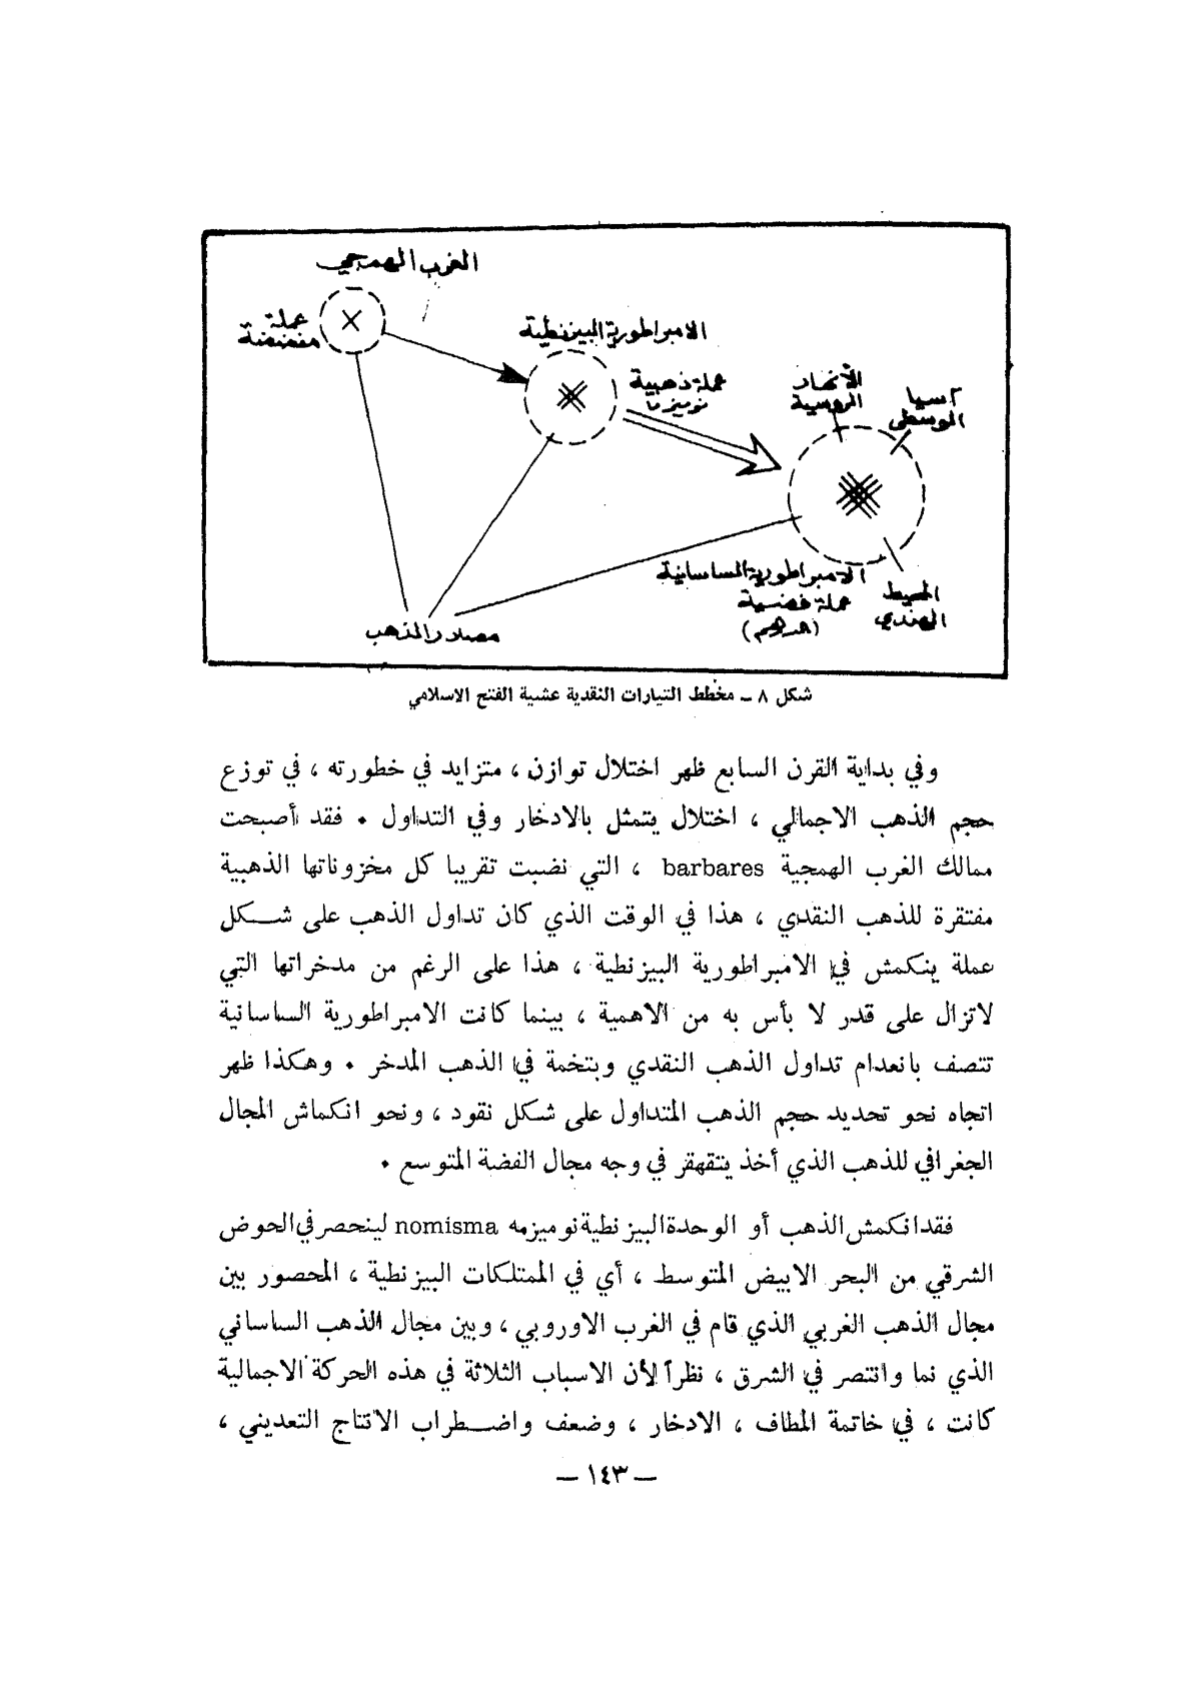 الغرب الهمجي
عملة
مفضضة
الامبراطورية البيزنطية
عملة ذهبية
نوميزما
الأنهار
الروسية
آسيا
الوسطى
الامبراطورية الساسانية
عملة فضية
(درهم)
المحيط
الهندي
مصادر الذهب
شكل ٨ ــ مخطط التيارات النقدية عشية الفتح الاسلامي
وفي بداية القرن السابع ظهر اختلال توازن ، متزايد في خطورته ، في توزع
حجم الذهب الاجمالي ، اختلال يتمثل بالادخار وفي التداول . فقد أصبحت
ممالك الغرب الهمجية barbares ، التي نضبت تقريبا كل مخزوناتها الذهبية
مفتقرة للذهب النقدي ، هذا في الوقت الذي كان تداول الذهب على شـــكل
عملة ينكمش في الامبراطورية البيزنطية ، هذا على الرغم من مدخراتها التي
لاتزال على قدر لا بأس به من الاهمية ، بينما كانت الامبراطورية الساسانية
تتصف بانعدام تداول الذهب النقدي وبتخمة في الذهب المدخر . وهكذا ظهر
اتجاه نحو تحديد حجم الذهب المتداول على شكل نقود ، ونحو انكماش المجال
الجغرافي للذهب الذي أخذ يتقهقر في وجه مجال الفضة المتوسع .
فقد انكمش الذهب أو الوحدة البيزنطية نوميزمه nomisma لينحصر في الحوض
الشرقي من البحر الابيض المتوسط ، أي في الممتلكات البيزنطية ، المحصور بين
مجال الذهب الغربي الذي قام في الغرب الاوروبي ، وبين مجال الذهب الساساني
الذي نما وانتصر في الشرق ، نظراً لأن الاسباب الثلاثة في هذه الحركة الاجمالية
كانت ، في خاتمة المطاف ، الادخار ، وضعف واضـــطراب الانتاج التعديني ،
— ١٤٣ —